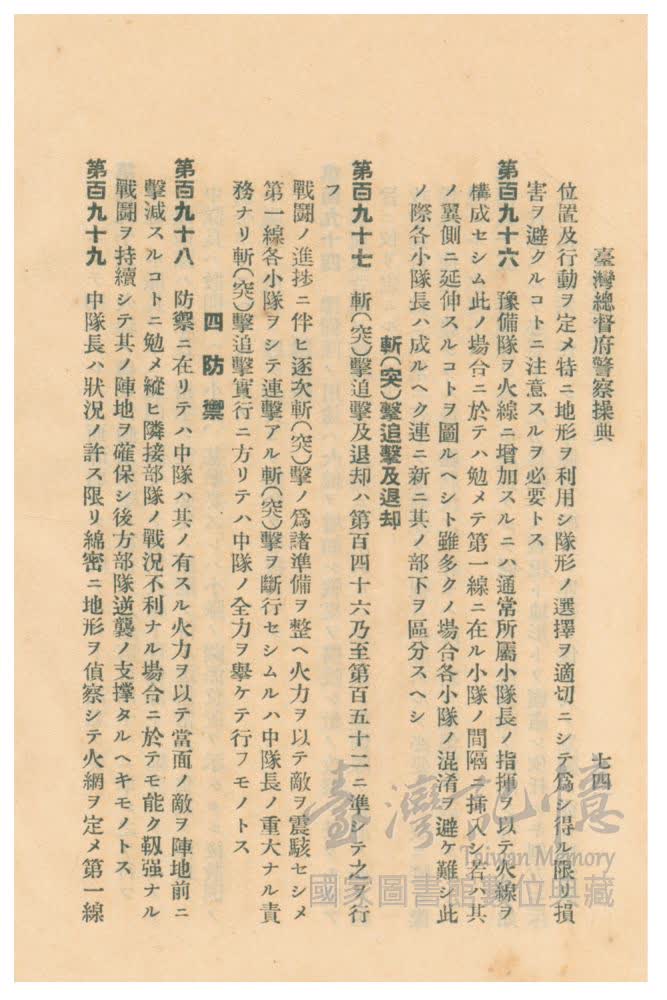 臺灣總督府警察操典
七四
位置及行動ヲ定メ特ニ地形ヲ利用シ隊形ノ選擇ヲ適切ニシテ爲シ得ル限リ損
害ヲ避クルコトニ注意スルヲ必要トス
第百九十六 豫備隊ヲ火線ニ增加スルニハ通常所屬小隊長ノ指揮ヲ以テ火線ヲ
構成セシム此ノ場合ニ於テハ勉メテ第一線ニ在ル小隊ノ間隔ニ挿入シ若ハ其
ノ翼側ニ延伸スルコトヲ圖ルヘシト雖多クノ場合各小隊ノ混淆ヲ避ケ難シ此
ノ際各小隊長ハ成ルヘク速ニ新ニ其ノ部下ヲ區分スヘシ
斬(突)擊追擊及退却
第百九十七 斬(突)擊追擊及退却ハ第百四十六乃至第百五十二ニ準シテ之ヲ行
フ
戰鬪ノ進捗ニ伴ヒ逐次斬(突)擊ノ爲諸準備ヲ整ヘ火力ヲ以テ敵ヲ震駭セシメ
第一線各小隊ヲシテ連擊アル斬(突)擊ヲ斷行セシムルハ中隊長ノ重大ナル責
務ナリ斬(突)擊追擊實行ニ方リテハ中隊ノ全力ヲ擧ケテ行フモノトス
四 防禦
第百九十八 防禦ニ在リテハ中隊ハ其ノ有スル火力ヲ以テ當面ノ敵ヲ陣地前ニ
擊滅スルコトニ勉メ縱ヒ隣接部隊ノ戰況不利ナル場合ニ於テモ能ク靱强ナル
戰鬪ヲ持續シテ其ノ陣地ヲ確保シ後方部隊逆襲ノ支撑タルヘキモノトス
第百九十九 中隊長ハ狀況ノ許ス限リ綿密ニ地形ヲ偵察シテ火網ヲ定メ第一線
臺灣記憶
Taiwan Memory
國家圖書館數位典藏